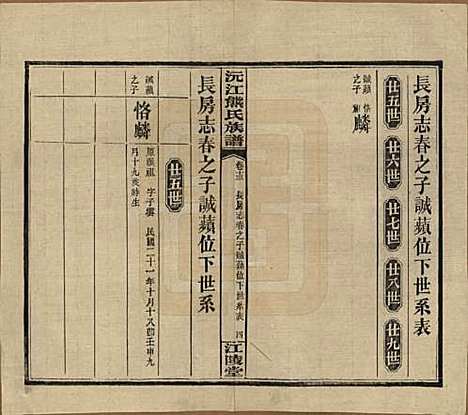 長房志春之子誠蘋位下世系表
廿五世
廿六世
廿七世
廿八世
廿九世
誠蘋
之子
恪麟
沅江熊氏族譜
長房志春之子誠蘋位下世系表
四
江陵堂
長房志春之子誠蘋位下世系
廿五世
誠蘋
之子
恪麟
字子雲
民國二十一年
月十九亥時生